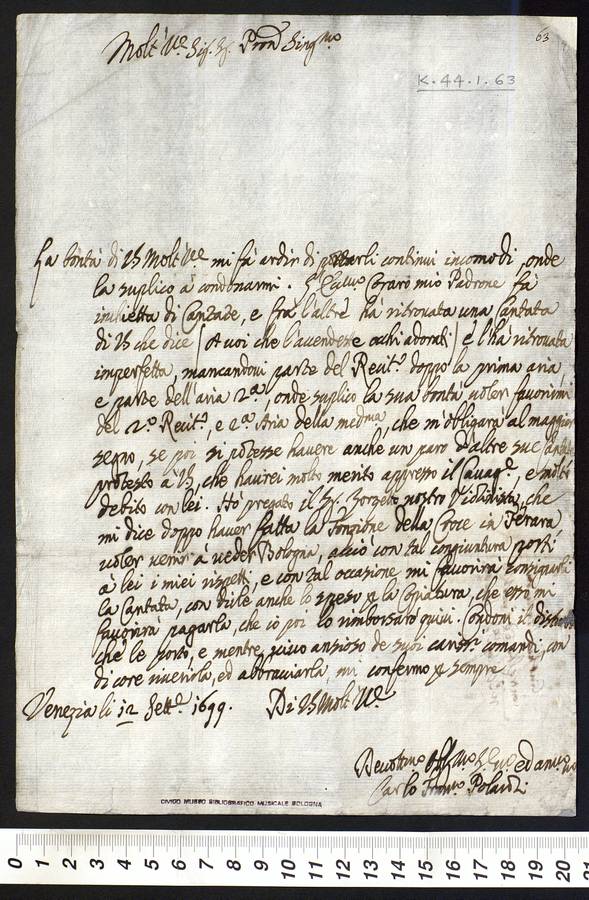 63
Molt' Ill.e Sig.r Sig.r Pron Sing.mo
K.44.1.63
La bontà di VS Molt Ill.e mi fà ardir di portarli continui incomodi, onde
la suplico à condonarmi. S. Ecc.a Coraro mio Padrone fà
di Cantate, e frà l'altre hà ritrovata una Cantata
di VS che dice ( A voi che l'accendeste occhi adorati ) e l'hà ritrovata
imperfetta, mancandovi parte del Recit.o doppo la prima aria,
e parte dell'aria 2.a, onde suplico la sua bontà voler favorirmi
del 2.o Recit.o, e 2.a Aria della medma, che m'obligarà al maggior
segno, se poi si potesse havere anche un paro d'altre sue
protesto à VS, che haverei molto merito appresso il Cavag.r, e molto
debito con lei. Hò pregato il Sig. Borzetto nostro Violinista, che
mi dice doppo haver fatta la Fonzione della Croce in Ferara
voler venir à veder Bologna, acciò con tal congiuntura porti
à lei i miei rispetti, e con tal occasione mi favorirà consignarli
la Cantata, con dirle anche lo speso p la Copiatura, che esso mi
favorirà pagarla, che io poi lo rimborsarò quivi. Condoni il
che le porto, e mentre vivo ansioso de suoi cariss.i comandi, con
di core riverirla, ed abbracciarla, mi confermo p sempre
Venezia li 12 Sett.e 1699. Di VS Molt Ill.e
Devotmo Oss.mo Ser.e ed
Carlo Fran.co Polaroli
CIVICO MUSEO BIBLIOGRAFICO MUSICALE BOLOGNA
0 1 2 3 4 5 6 7 8 9 10 11 12 13 14 15 16 17 18 19 20 21